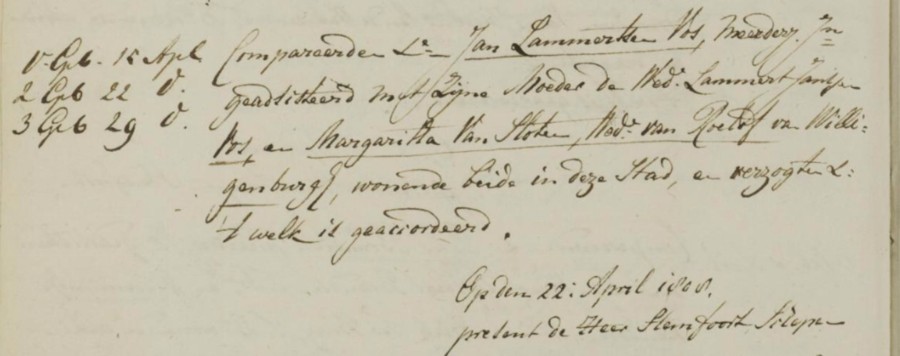 1 Geb. 15 Apl.
2 Geb 22 d.
3 Geb 29 d.
Compareerden Jan Lammertsen Vos, meerderj. Jn
geadsisteerd met Zijne Moeder de Wede. Lammert Jansen
Vos, en Margaritta Van Sloten, Wede. van Roelof van Willi:
genburg, wonende beide in deze Stad, en verzogten
't welk is geaccordeerd.
Op den 22: April 1808.
present de Heer Stemfoort Schepen